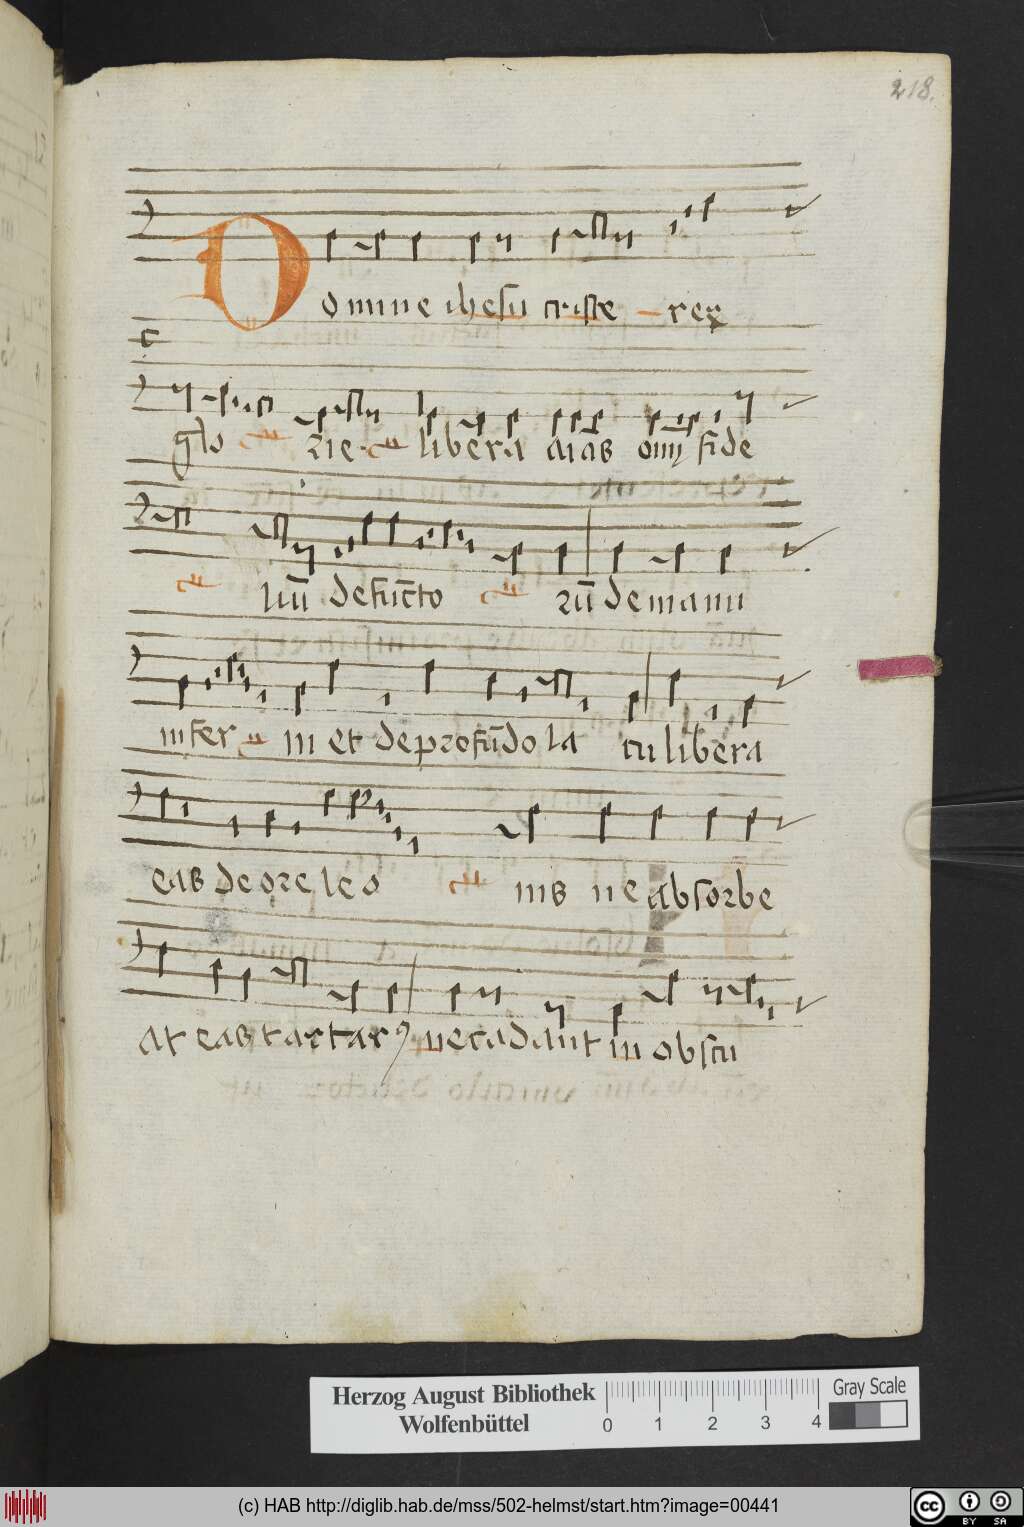 218.
Domine ihesu criste rex
glo rie libera aīas om̄ fide
liū defūcto rū de manu
infer ni et de profūdo la cu libera
eas de ore leo nis ne absorbe
at eas tartarꝯ ne cadant in obscu
Herzog August Bibliothek
Wolfenbüttel
0 1 2 3 4
Gray Scale
(c) HAB http://diglib.hab.de/mss/502-helmst/start.htm?image=00441
cc BY SA